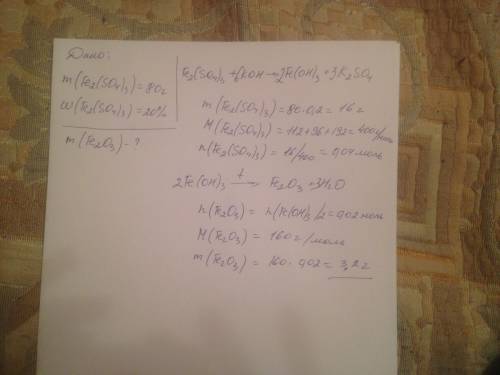 Дано:
m(Fe₂(SO₄)₃)=80г
w(Fe₂(SO₄)₃)=20%
m(Fe₂O₃)-?
Fe₂(SO₄)₃+6KOH→2Fe(OH)₃+3K₂SO₄
m(Fe₂(SO₄)₃)=80·0,2=16г
M(Fe₂(SO₄)₃)=112+96+192=400г/моль
n(Fe₂(SO₄)₃)=16/400=0,04моль
2Fe(OH)₃ t→ Fe₂O₃+3H₂O
n(Fe₂O₃)=n(Fe(OH)₃/2=0,02моль
M(Fe₂O₃)=160г/моль
m(Fe₂O₃)=160·0,02=3,2г